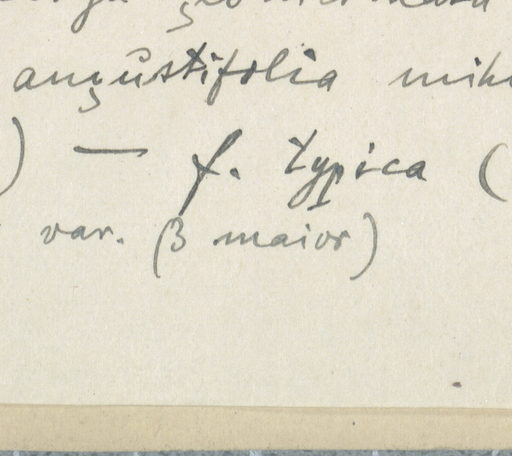 angustifolia
) — f. typica (
var. (β maior)